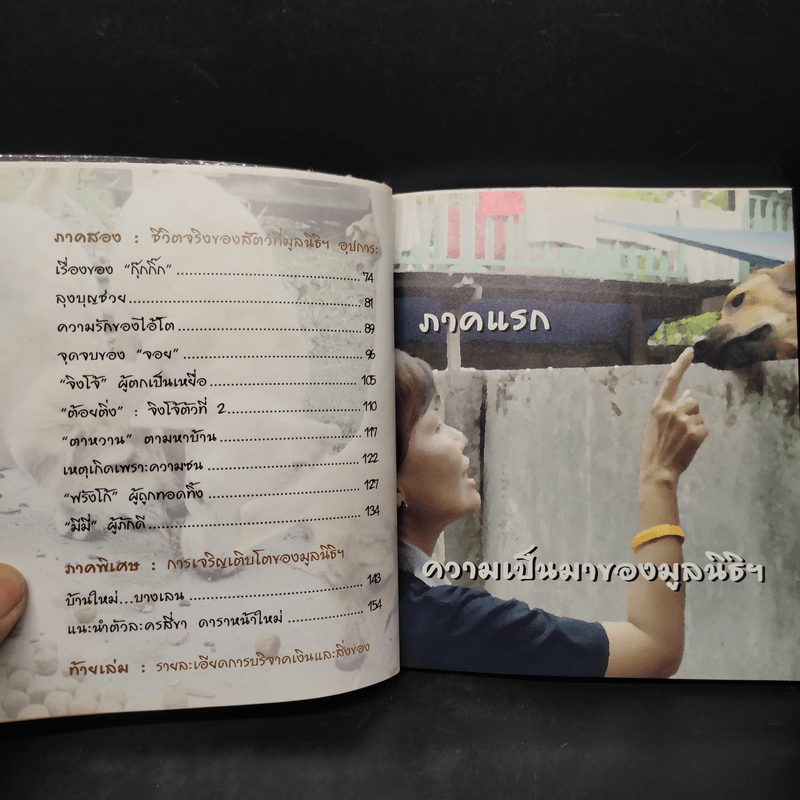 ภาคสอง : ชีวิตจริงของสัตว์ที่มูลนิธิฯ อุปการะ
เรื่องของ “กุ๊กกิ๊ก”........................................74
ลุงบุญช่วย........................................81
ความรักของไอ้โต........................................89
จุดจบของ “จอย”........................................96
“จิงโจ้” ผู้ตกเป็นเหยื่อ........................................105
“ต้อยติ่ง” : จิงโจ้ตัวที่ 2........................................110
“ตาหวาน” ตามหาบ้าน........................................117
เหตุเกิดเพราะความซน........................................122
“ฟรังโก้” ผู้ถูกทอดทิ้ง........................................127
“มีมี่” ผู้ภักดี........................................134
ภาคพิเศษ : การเจริญเติบโตของมูลนิธิฯ
บ้านใหม่...บางเลน........................................143
แนะนำตัวละครสี่ขา ดาราหน้าใหม่........................................154
ท้ายเล่ม : รายละเอียดการบริจาคเงินและสิ่งของ
ภาคแรก
ความเป็นมาของมูลนิธิฯ